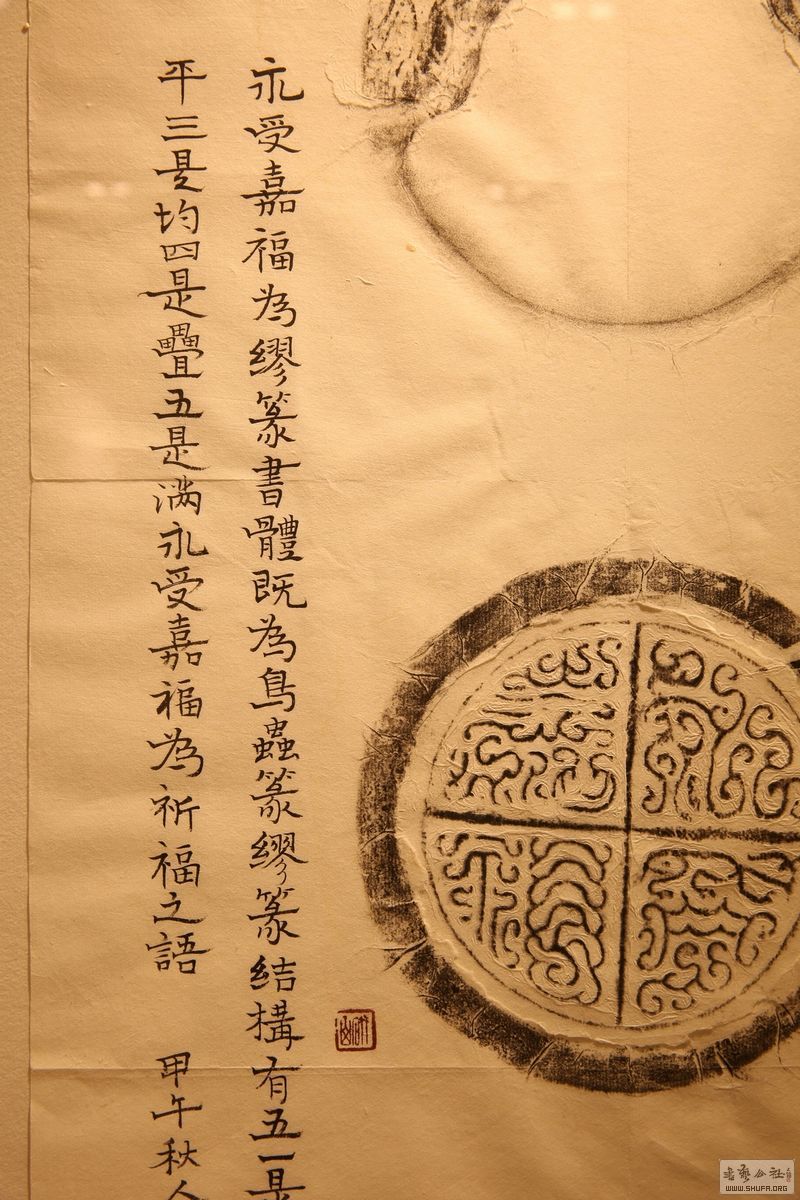 永受嘉福為繆篆書體既為鳥蟲篆繆篆結構有五一是
平三是均四是疊五是满永受嘉福為祈福之語 甲午秋人
永受嘉福
書藝公社
WWW.SHUFA.ORG